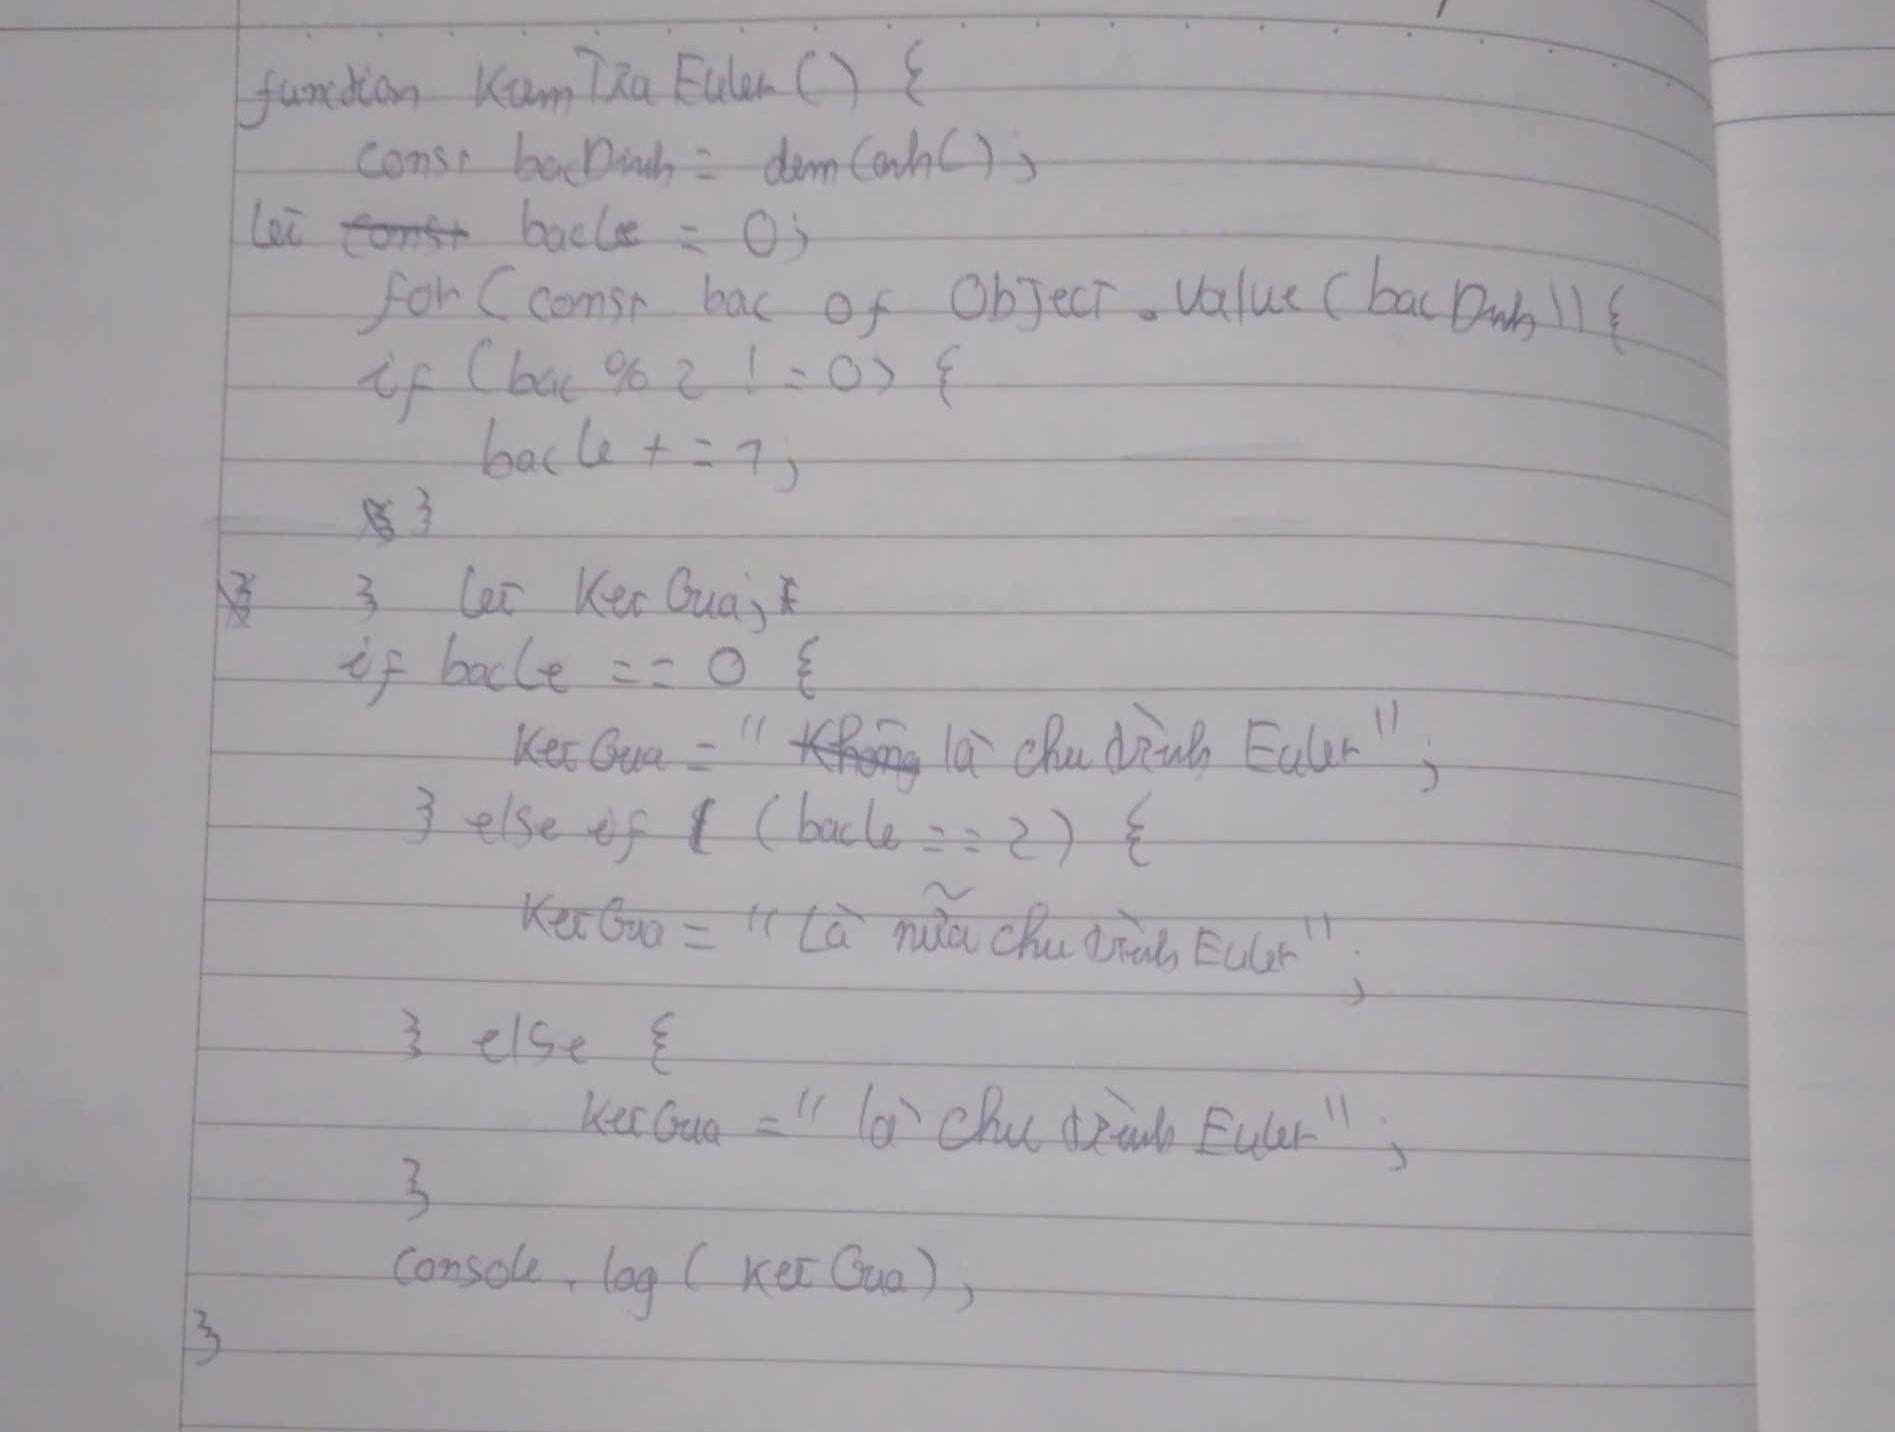 function KiemTraEuler() {
const bacDinh = demCanh();
let bacLe = 0;
for (const bac of Object.value(bacDinh)) {
if (bac % 2 != 0) {
bacLe += 1;
}
} let KetQua;
if bacLe == 0 {
KetQua = " là chu trình Euler";
} else if (bacLe == 2) {
KetQua = "Là nữa chu trình Euler";
} else {
KetQua = " là chu trình Euler";
}
console.log( KetQua);
}